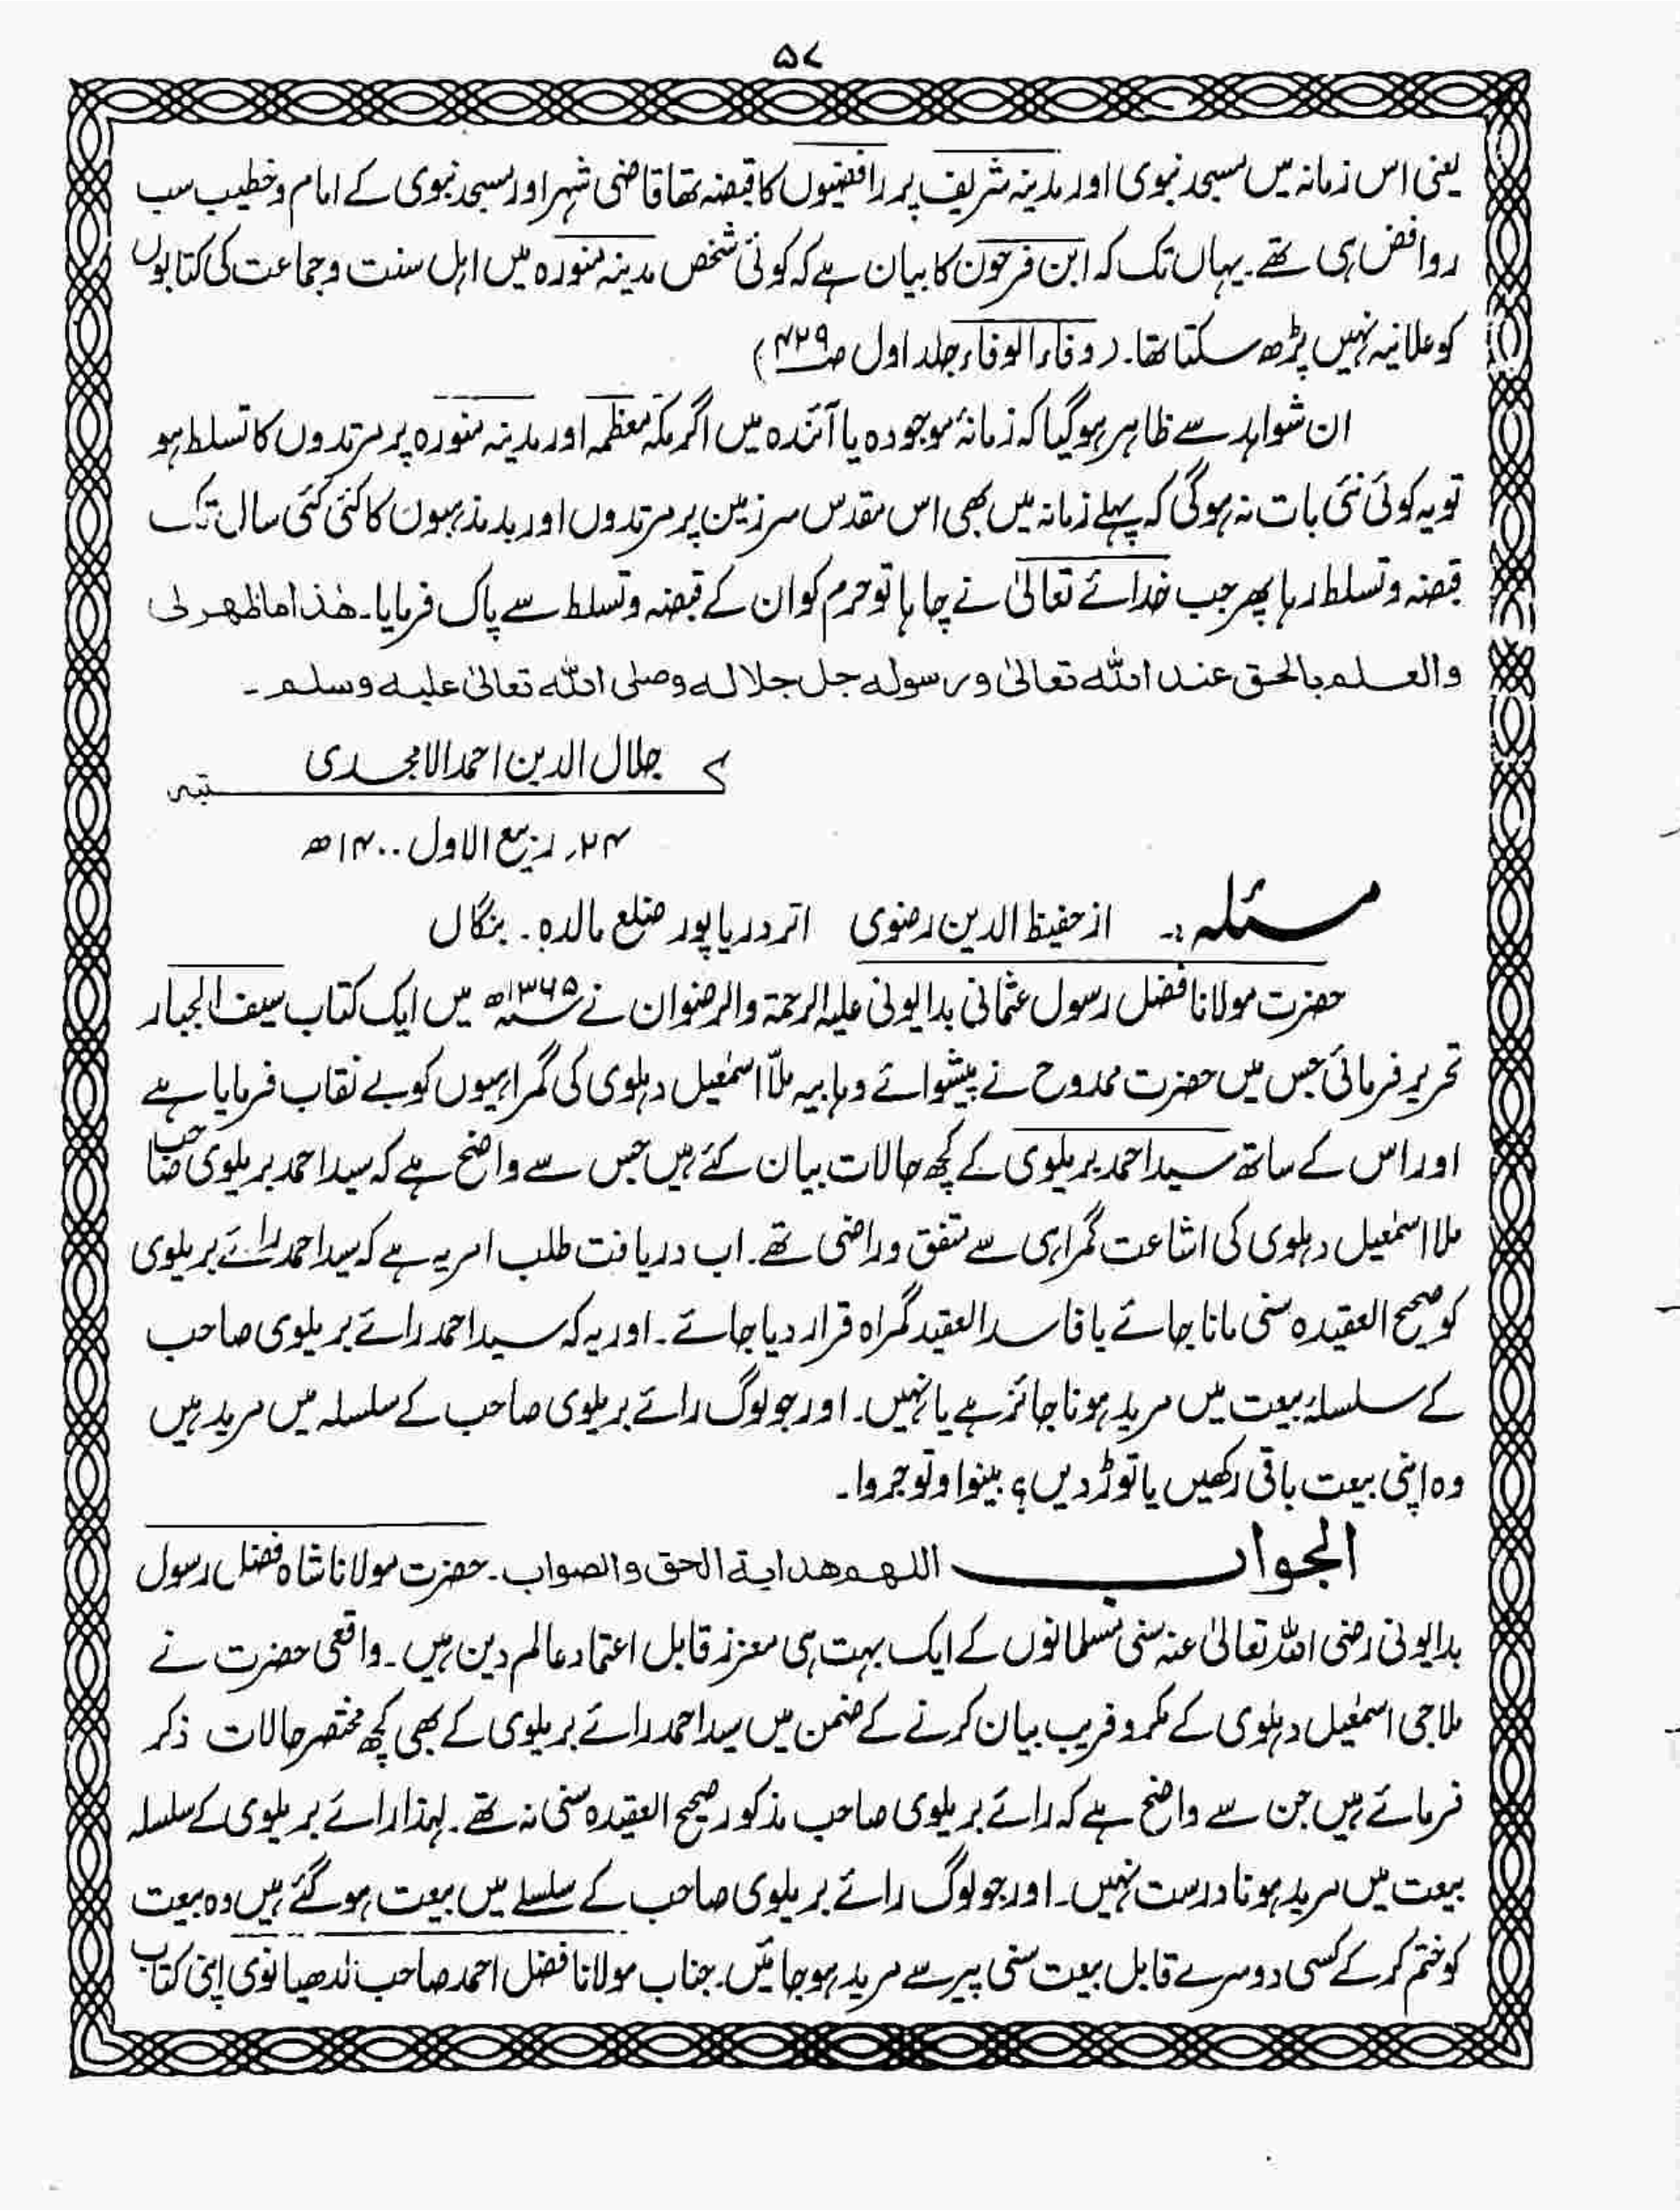 ۵۷
یعنی اس زمانہ میں مسجد نبوی اور مدینہ شریف پر رافضیوں کا قبضہ تھا قاضی شہر اور مسجد نبوی کے امام و خطیب سب
روافض ہی تھے۔ یہاں تک کہ ابن فرحون کا بیان ہے کہ کوئی شخص مدینہ منورہ میں اہل سنت و جماعت کی کتابوں
کو علانیہ نہیں پڑھ سکتا تھا۔ (وفاء الوفاء جلد اول صـ۴۲۹)
ان شواہد سے ظاہر ہوگیا کہ زمانۂ موجودہ یا آئندہ میں اگر مکہ معظمہ اور مدینہ منورہ پر مرتدوں کا تسلط ہو
تو یہ کوئی نئی بات نہ ہوگی کہ پہلے زمانہ میں بھی اس مقدس سرزمین پر مرتدوں اور بدمذہبوں کا کئی کئی سال تک
قبضہ و تسلط رہا پھر جب خدائے تعالیٰ نے چاہا تو حرم کو ان کے قبضہ و تسلط سے پاک فرمایا۔ ھٰذا ما ظھر لی
والعلم بالحق عند اللہ تعالیٰ ورسولہ جل جلالہ وصلی اللہ تعالیٰ علیہ وسلم۔
کتبہ جلال الدین احمد الامجدی
۲۴؍ ربیع الاول ۱۴۰۰ھ
مسئلہ:۔ از حفیظ الدین رضوی اتر دریاپور ضلع مالدہ۔ بنگال
حضرت مولانا فضل رسول عثمانی بدایونی علیہ الرحمۃ والرضوان نے ۱۳۶۵ھ میں ایک کتاب سیف الجبار
تحریر فرمائی جس میں حضرت ممدوح نے پیشوائے وہابیہ ملّا اسمٰعیل دہلوی کی گمراہیوں کو بے نقاب فرمایا ہے
اور اس کے ساتھ سید احمد بریلوی کے کچھ حالات بیان کئے ہیں جس سے واضح ہے کہ سید احمد بریلوی صاحب
ملا اسمٰعیل دہلوی کی اشاعت گمراہی سے متفق و راضی تھے۔ اب دریافت طلب امر یہ ہے کہ سید احمد رائے بریلوی
کو صحیح العقیدہ سنی مانا جائے یا فاسد العقید گمراہ قرار دیا جائے۔ اور یہ کہ سید احمد رائے بریلوی صاحب
کے سلسلۂ بیعت میں مرید ہونا جائز ہے یا نہیں۔ اور جو لوگ رائے بریلوی صاحب کے سلسلہ میں مرید ہیں
وہ اپنی بیعت باقی رکھیں یا توڑ دیں؟ بینوا و توجروا۔
الجواب اللھم ھدایۃ الحق والصواب۔ حضرت مولانا شاہ فضل رسول
بدایونی رضی اللہ تعالیٰ عنہ سنی مسلمانوں کے ایک بہت ہی معزز قابل اعتماد عالم دین ہیں۔ واقعی حضرت نے
ملا جی اسمٰعیل دہلوی کے مکر و فریب بیان کرنے کے ضمن میں سید احمد رائے بریلوی کے بھی کچھ مختصر حالات ذکر
فرمائے ہیں جن سے واضح ہے کہ رائے بریلوی صاحب مذکور صحیح العقیدہ سنی نہ تھے۔ لہذا رائے بریلوی کے سلسلہ
بیعت میں مرید ہونا درست نہیں۔ اور جو لوگ رائے بریلوی صاحب کے سلسلے میں بیعت ہو گئے ہیں وہ بیعت
کو ختم کر کے کسی دوسرے قابل بیعت سنی پیر سے مرید ہو جائیں۔ جناب مولانا فضل احمد صاحب لدھیانوی اپنی کتاب